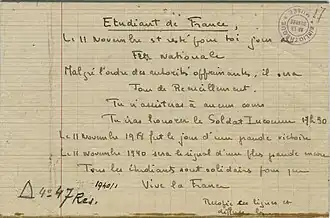 Etudiant de France,
Le 11 Novembre est resté pour toi jour de
Fête nationale
Malgré l'ordre des autorités opprimantes, il sera
Jour de Recueillement.
Tu n'assisteras à aucun cours
Tu iras honorer le Soldat Inconnu 17h30
Le 11 Novembre 1918 fut le jour d'une grande victoire
Le 11 Novembre 1940 sera le signal d'une plus grande encore
Tous les étudiants sont solidaires pour que
Vive la France
Recopie ces lignes et
diffuse
4º 47 Res.
1940/1
17